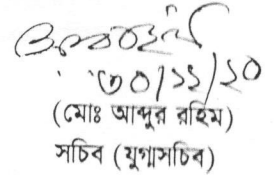 ৩০/১১/২০
(মোঃ আব্দুর রহিম)
সচিব (যুগ্মসচিব)